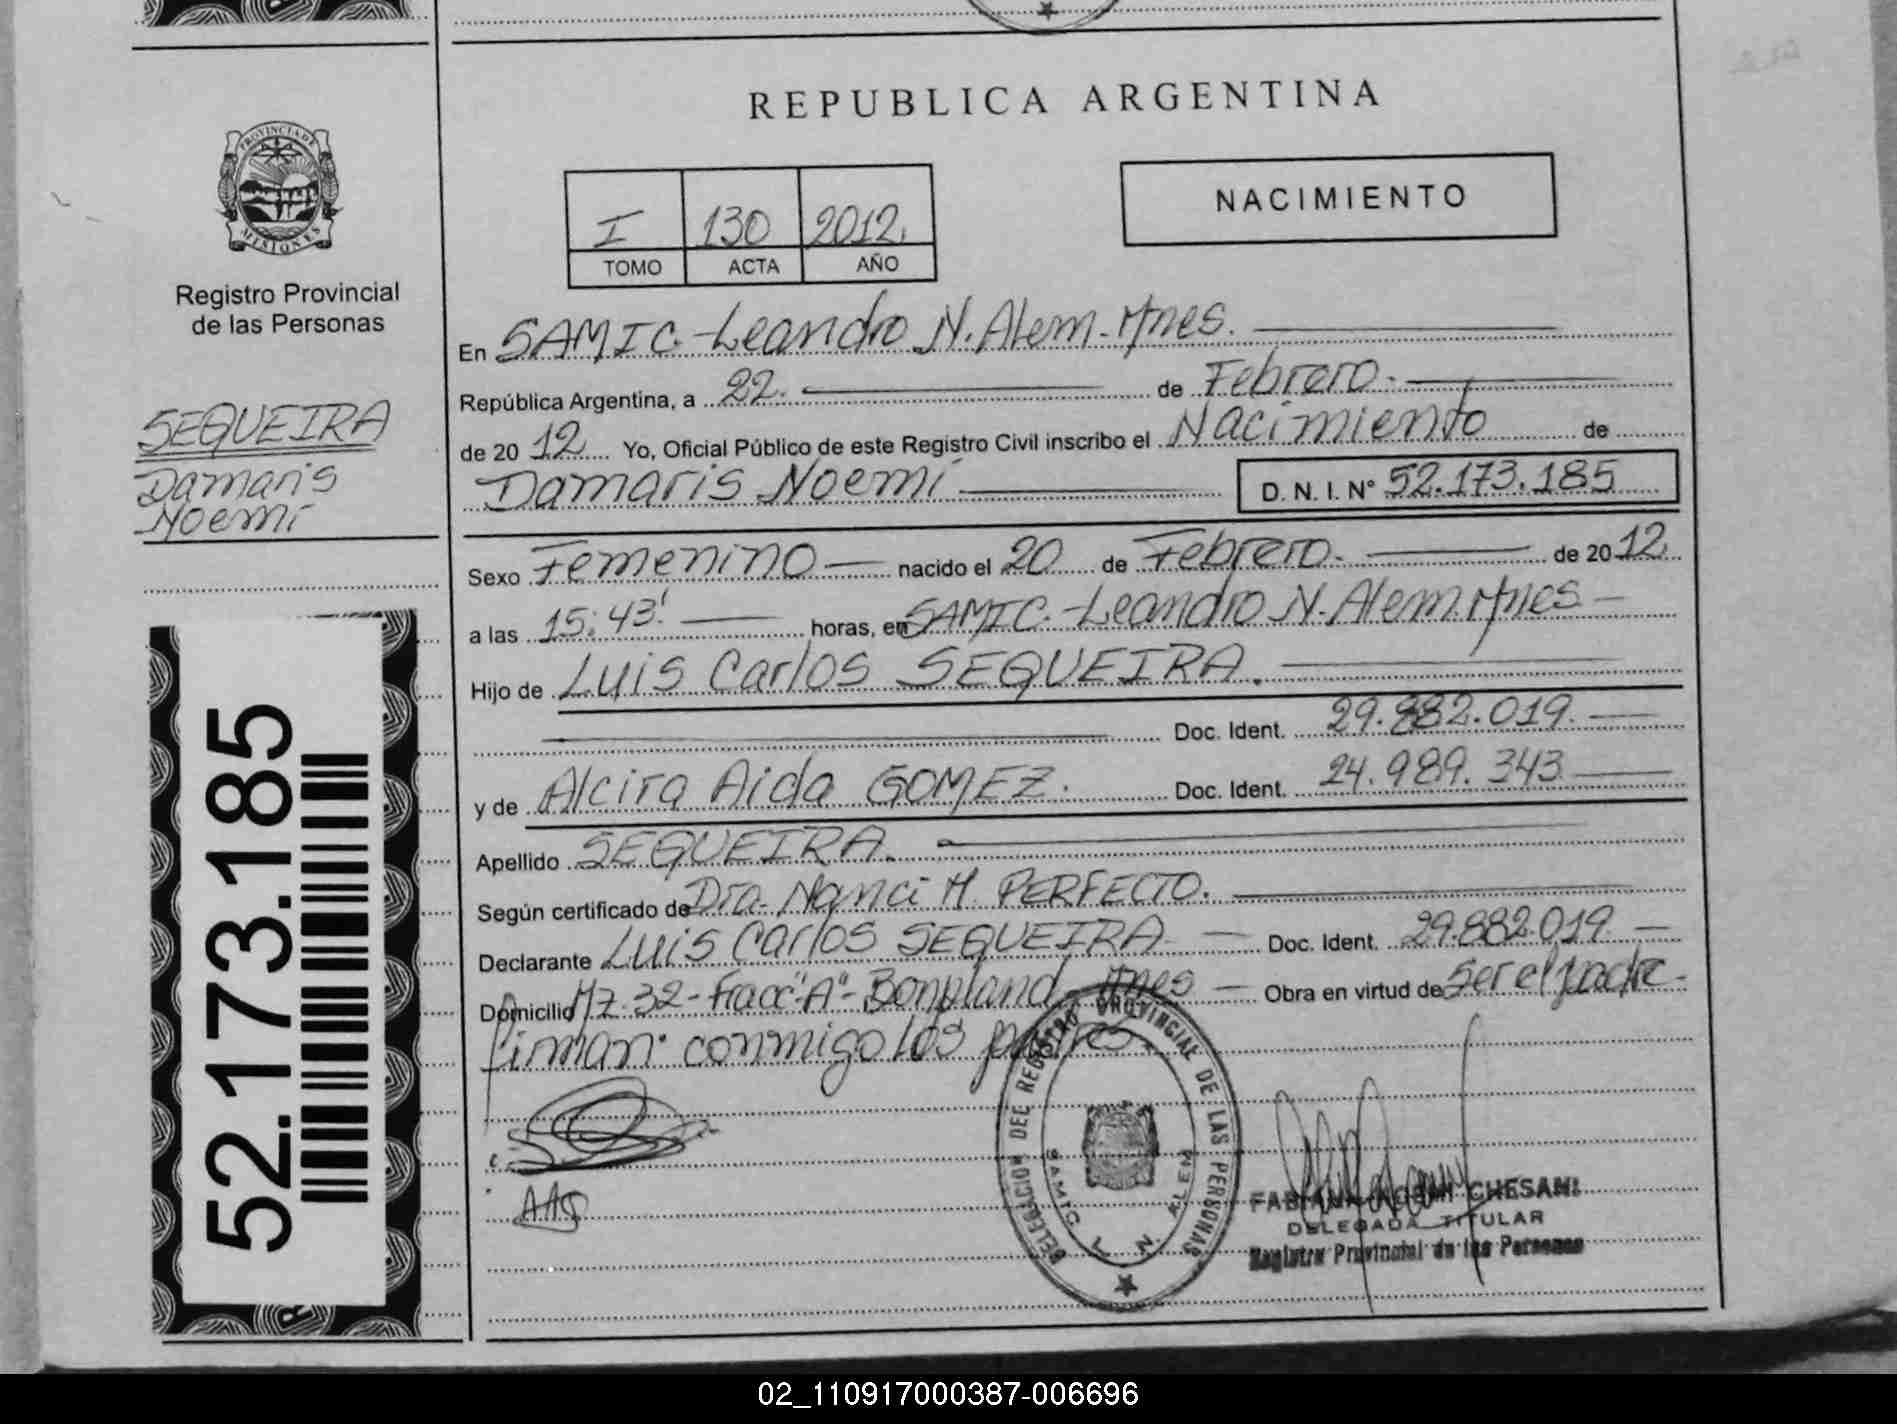 REPUBLICA ARGENTINA
PROVINCIA DE
MISIONES
Registro Provincial
de las Personas
SEQUEIRA
Damaris
Noemí
52.173.185
I 130 2012
TOMO ACTA AÑO
NACIMIENTO
En SAMIC-Leandro N. Alem-Mnes.
República Argentina, a 22. de Febrero.
de 20 12 Yo, Oficial Público de este Registro Civil inscribo el Nacimiento de
Damaris Noemí D. N. I. N° 52.173.185
Sexo Femenino nacido el 20 de Febrero. de 20 12
a las 15:43' horas, en SAMIC-Leandro N. Alem.Mnes
Hijo de Luis Carlos SEQUEIRA.
Doc. Ident. 29.882.019.
y de Alcira Aida GOMEZ. Doc. Ident. 24.989.343
Apellido SEQUEIRA.
Según certificado de Dra. Nanci M. PERFECTO.
Declarante Luis Carlos SEQUEIRA Doc. Ident. 29.882.019
Domicilio Mz.32-Fracc"A"-Bonpland-Mnes Obra en virtud de ser el padre
Firman conmigo los padres.
DELEGACION DEL REGISTRO PROVINCIAL DE LAS PERSONAS
SAMIC L N ALEM
FABIANA NOEMI CHESANI
DELEGADA TITULAR
Registro Provincial de las Personas
02_110917000387-006696